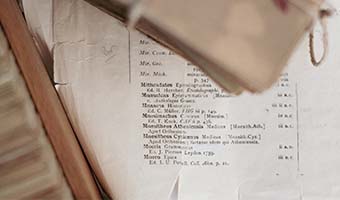 Mir.
Mir. Coni.
Mir. Gai.
Mir. Mich.
p. 347
Mithradates Epistolographus
Ed. R. Hercher, Epistolographi
Mnasalcas Epigrammaticus [Mnasalc.]
v. Anthologia Graeca
Mnaseas Historicus iii B.C.
Ed. C. Müller, FHG iii p. 149.
Mnesimachus Comicus [Mnesim.] iv B.C.
Ed. T. Kock, CAF ii p. 436.
Mnesitheus Atheniensis Medicus [Mnesith.Ath.] iv B.C.
Apud Oribasium.
Mnesitheus Cyzicenus Medicus [Mnesith.Cyz.] iv B.C.
Apud Oribasium; fortasse idem qui Atheniensis.
Moeris Grammaticus ii A.D.
Ed. J. Pierson Leyden 1759.
Moero Epica iii B.C.
Ed. I. U. Powell, Coll. Alex. p. 21.